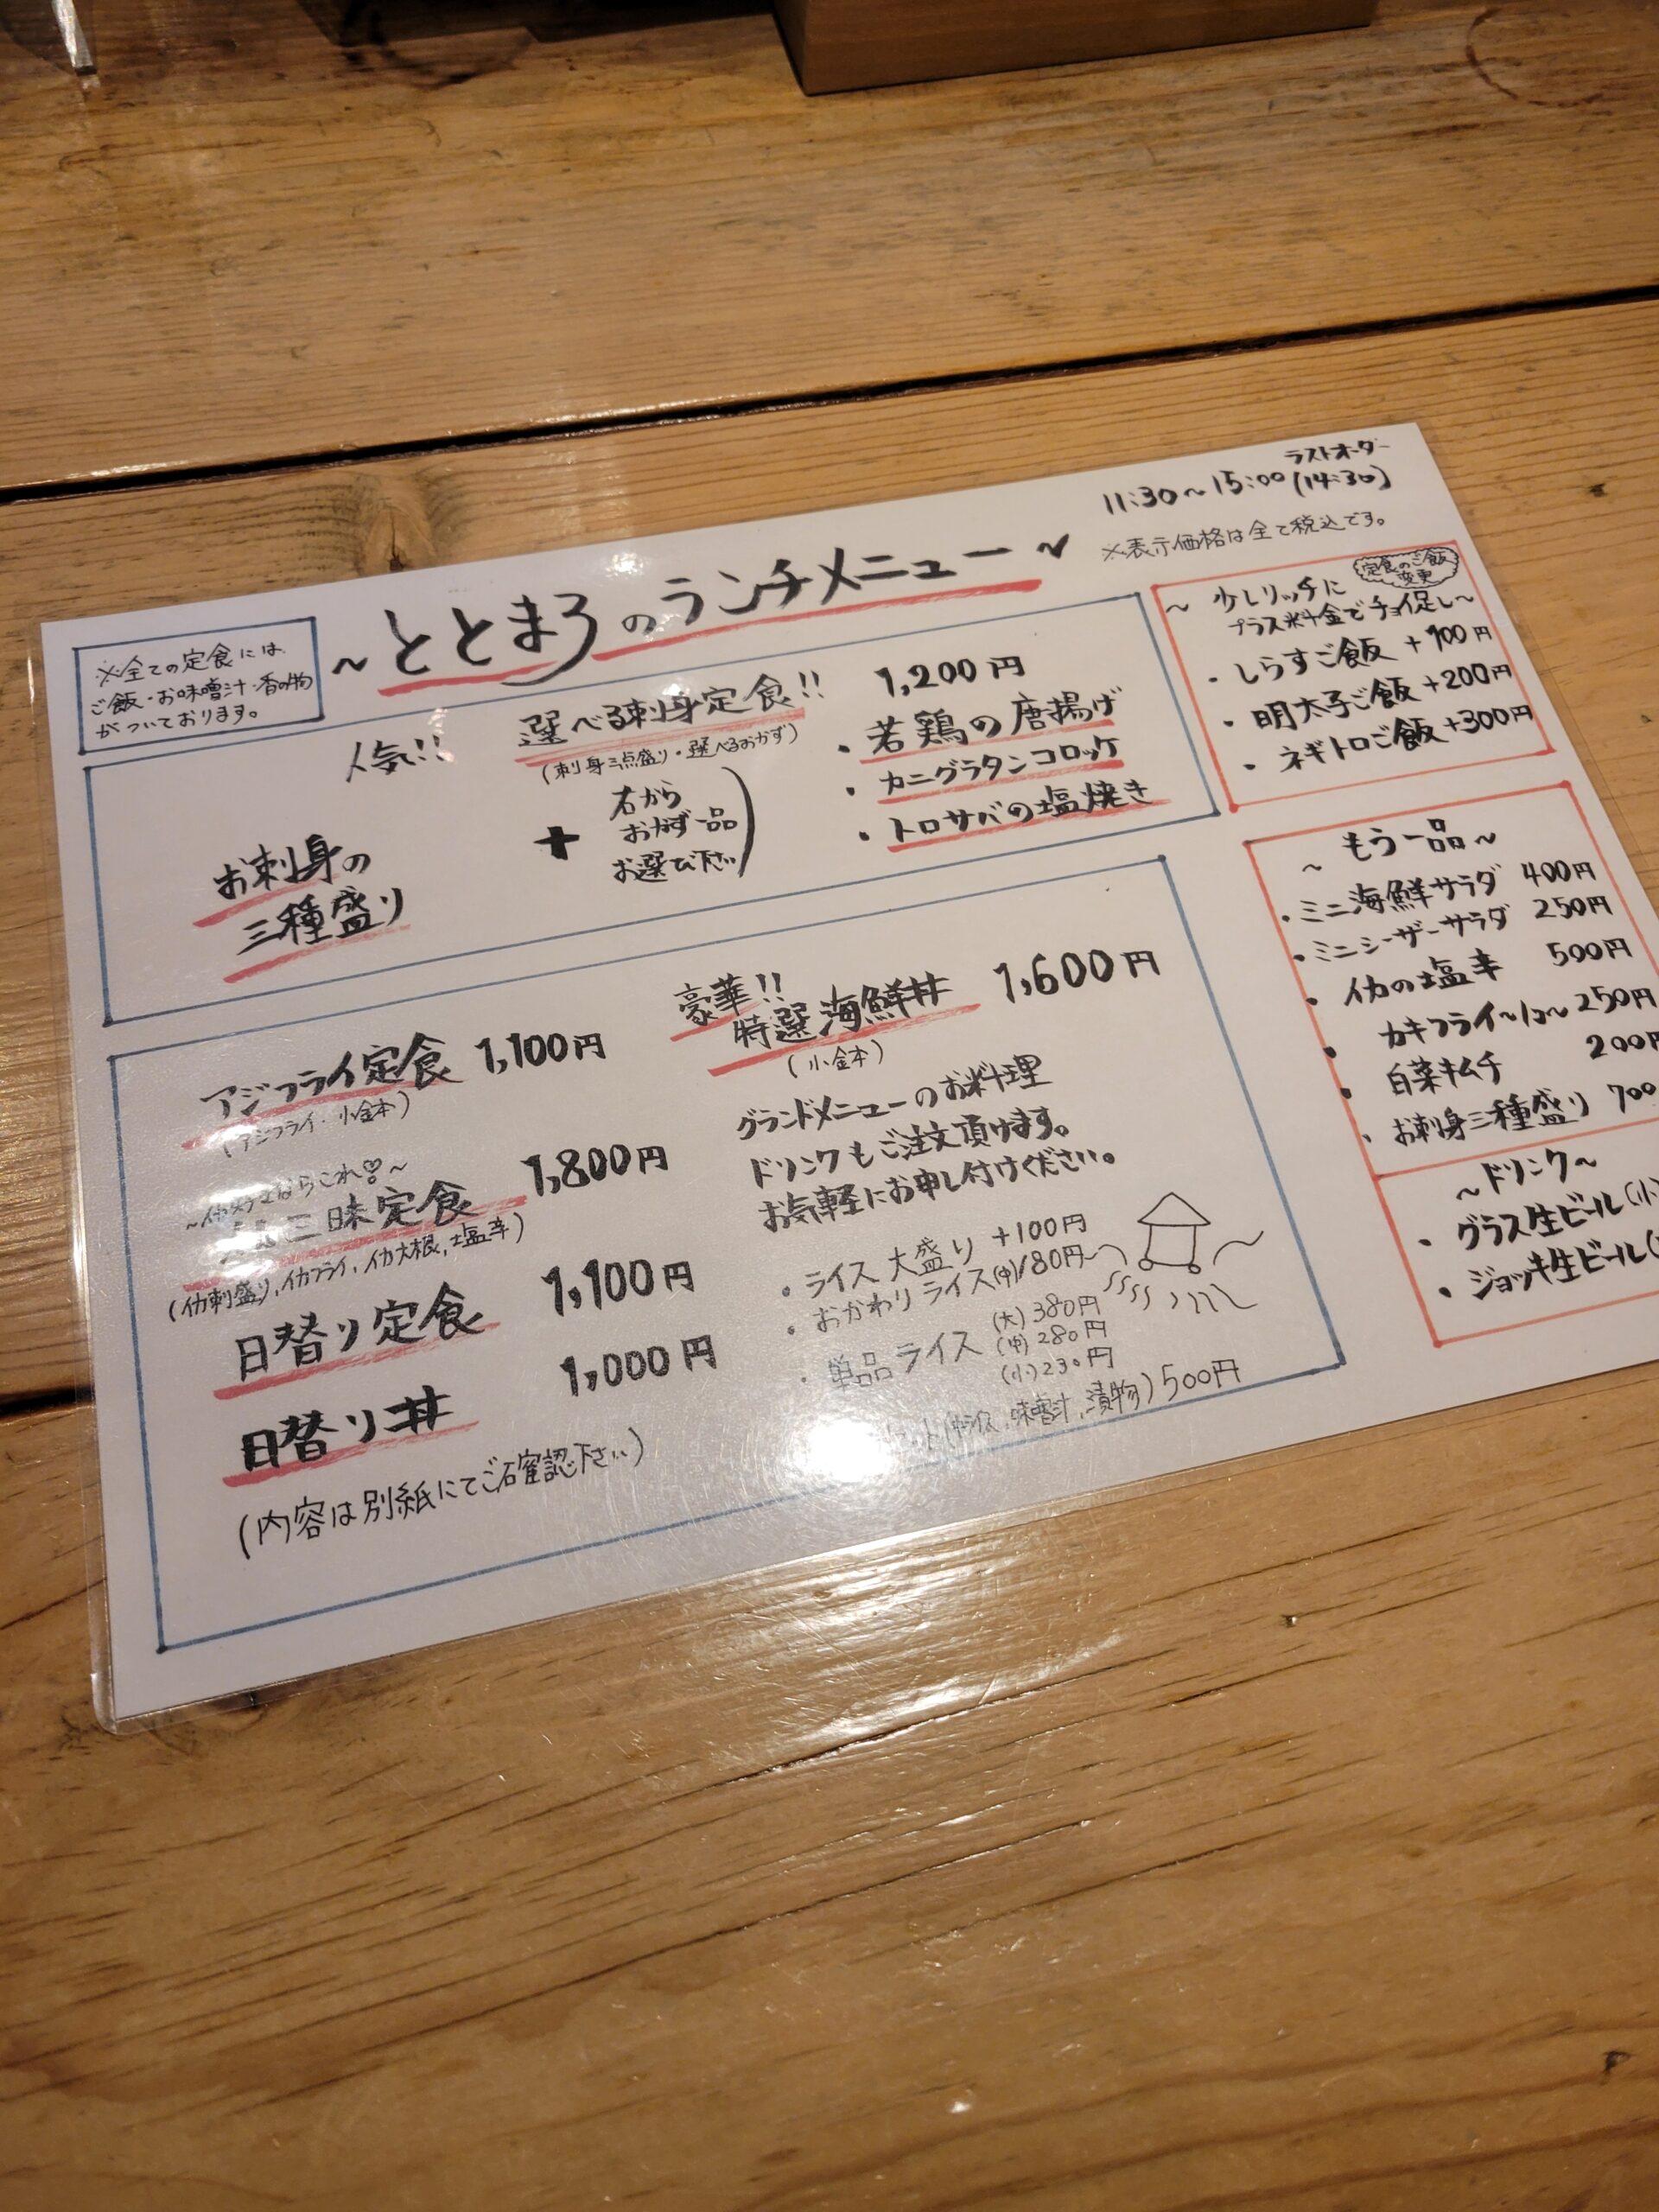 ラストオーダー
11:30～15:00(14:30)
※表示価格は全て税込です。
～ととまろのランチメニュー～
※全ての定食には
ご飯・お味噌汁・香の物
がついております。
人気!!
選べる刺身定食!!
1,200円
(刺身三点盛り・選べるおかず)
お刺身の
三種盛り
+
右から
おかず一品
お選び下さい
・若鶏の唐揚げ
・カニグラタンコロッケ
・トロサバの塩焼き
アジフライ定食 1,100円
(アジフライ・小金本)
～イカ好きならこれ♡～
三昧定食 1,800円
(イカ刺盛り,イカフライ,イカ大根,塩辛)
日替り定食 1,100円
日替り丼 1,000円
(内容は別紙にてご確認下さい)
豪華!!
特選海鮮丼 1,600円
(小金本)
グランドメニューのお料理
ドリンクもご注文頂けます。
お気軽にお申し付けください。
・ライス大盛り +100円
・おかわりライス(中)180円
・単品ライス (大)380円
(中)280円
(小)230円
ット(中ライス,味噌汁,漬物)500円
定食のご飯
変更
～少しリッチに
プラス料金でチョイ足し～
・しらすご飯 +100円
・明太子ご飯 +200円
・ネギトロご飯 +300円
～もう一品～
・ミニ海鮮サラダ 400円
・ミニシーザーサラダ 250円
・イカの塩辛 500円
・カキフライ～1コ～ 250円
・白菜キムチ 200円
・お刺身三種盛り 700
～ドリンク～
・グラス生ビール(小)
・ジョッキ生ビール(